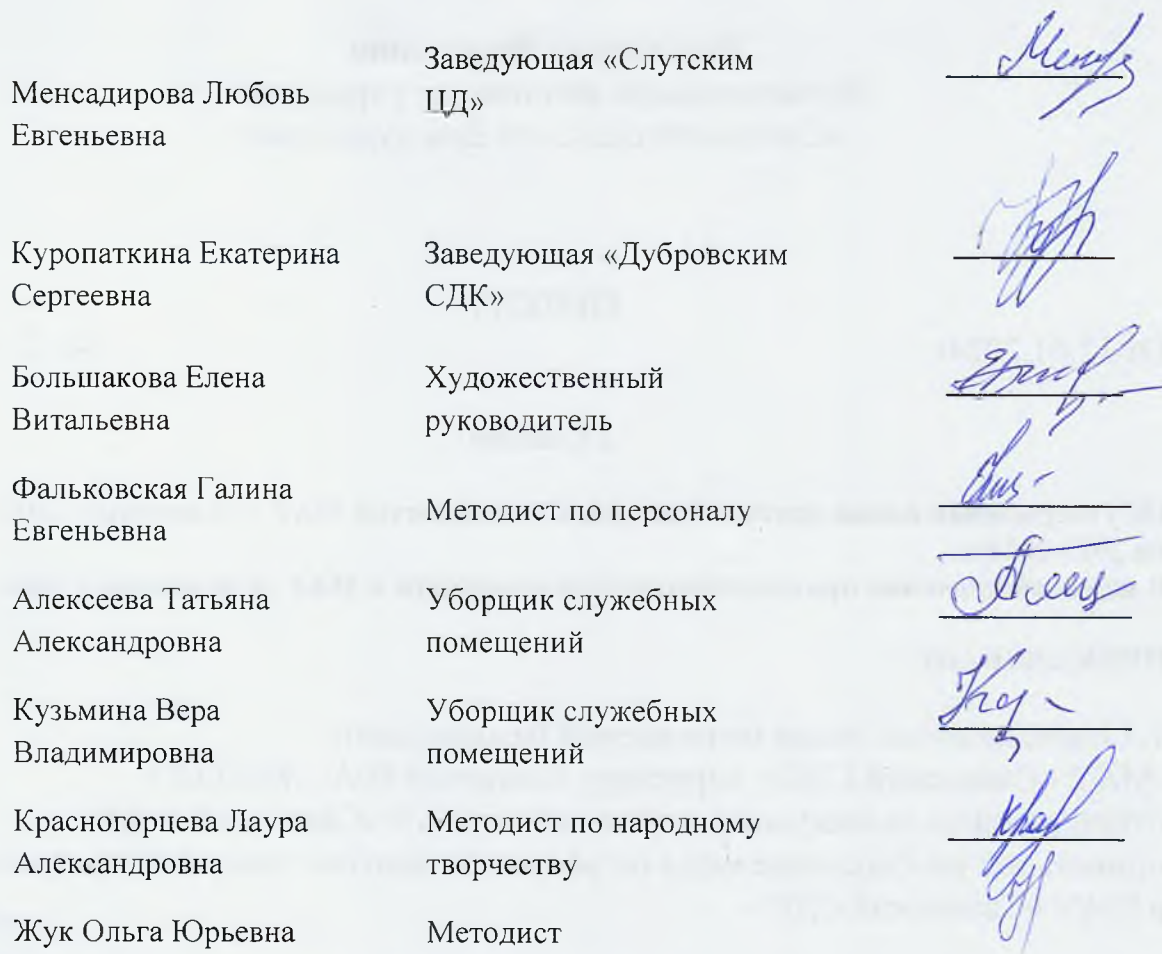 Менсадирова Любовь
Евгеньевна
Заведующая «Слутским
ЦД»
Куропаткина Екатерина
Сергеевна
Заведующая «Дубровским
СДК»
Большакова Елена
Витальевна
Художественный
руководитель
Фальковская Галина
Евгеньевна
Методист по персоналу
Алексеева Татьяна
Александровна
Уборщик служебных
помещений
Кузьмина Вера
Владимировна
Уборщик служебных
помещений
Красногорцева Лаура
Александровна
Методист по народному
творчеству
Жук Ольга Юрьевна
Методист